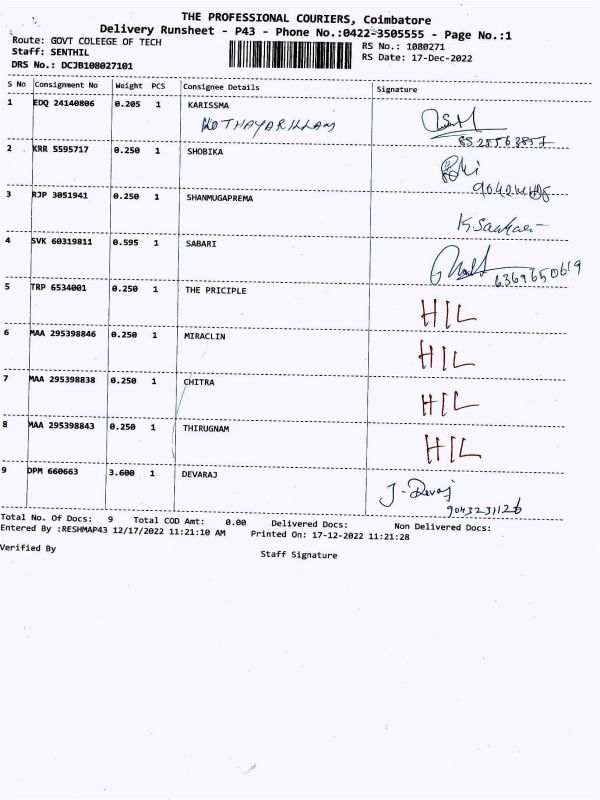 THE PROFESSIONAL COURIERS, Coimbatore
Delivery Runsheet - P43 - Phone No.:0422-3505555 - Page No.:1
Route: GOVT COLEEGE OF TECH
RS No.: 1080271
Staff: SENTHIL
RS Date: 17-Dec-2022
DRS No.: DCJB108027101
S No Consignment No Weight PCS Consignee Details Signature
1 EDQ 24140806 0.205 1 KARISSMA
KOTHAYARILLAM
2 KRR 5595717 0.250 1 SHOBIKA
3 RJP 3051941 0.250 1 SHANMUGAPREMA
4 SVK 60319811 0.595 1 SABARI
6369650619
5 TRP 6534001 0.250 1 THE PRICIPLE HIL
6 MAA 295398846 0.250 1 MIRACLIN HIL
7 MAA 295398838 0.250 1 CHITRA HIL
8 MAA 295398843 0.250 1 THIRUGNAM HIL
9 DPM 660663 3.600 1 DEVARAJ J-Devaj
9043231126
Total No. Of Docs: 9 Total COD Amt: 0.00 Delivered Docs: Non Delivered Docs:
Entered By :RESHMAP43 12/17/2022 11:21:10 AM Printed On: 17-12-2022 11:21:28
Verified By Staff Signature